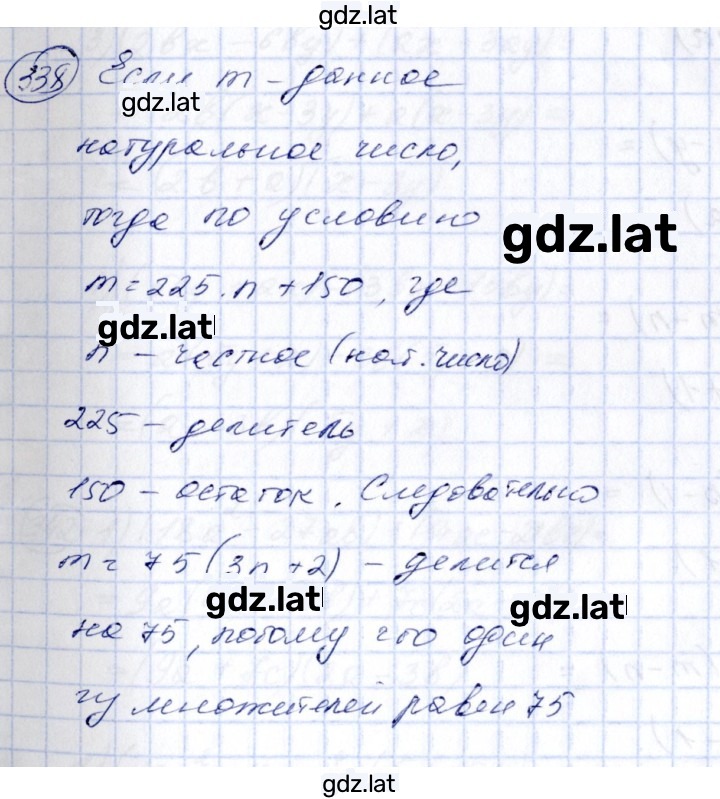 gdz.lat
338 Если m – данное
gdz.lat
натуральное число,
тогда по условию
gdz.lat
m = 225·n + 150, где
gdz.lat
n – частное (нат. число)
225 – делитель
150 – остаток. Следовательно
m = 75(3n + 2) – делится
gdz.lat gdz.lat
на 75, потому что один
из множителей равен 75
gdz.lat